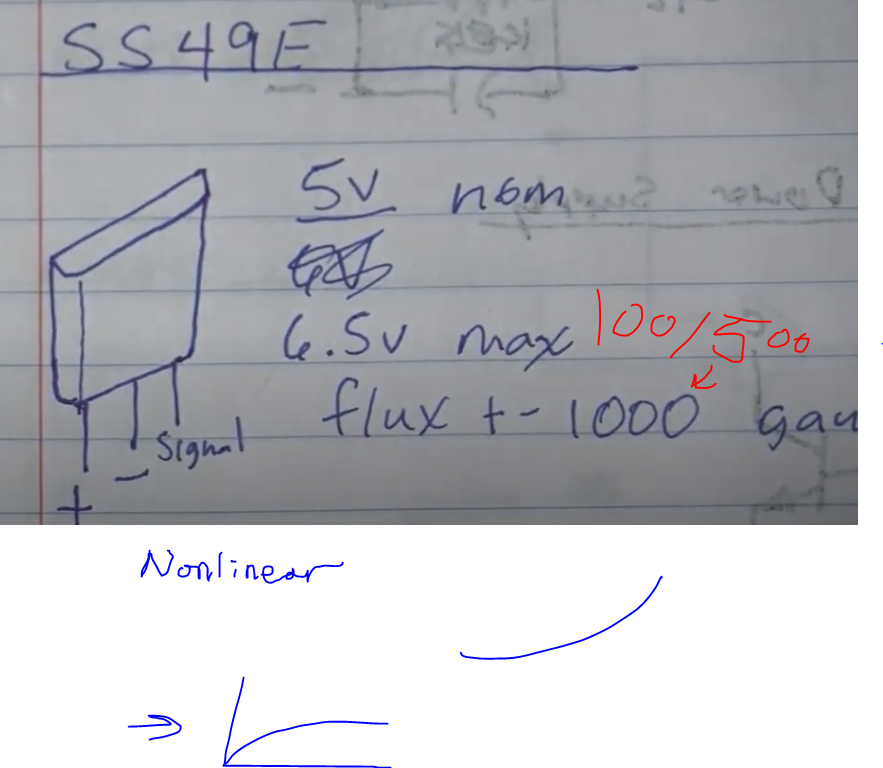 SS49E
5v nom
6.5v max 100/500
flux +- 1000 gau
Signal
-
+
Nonlinear